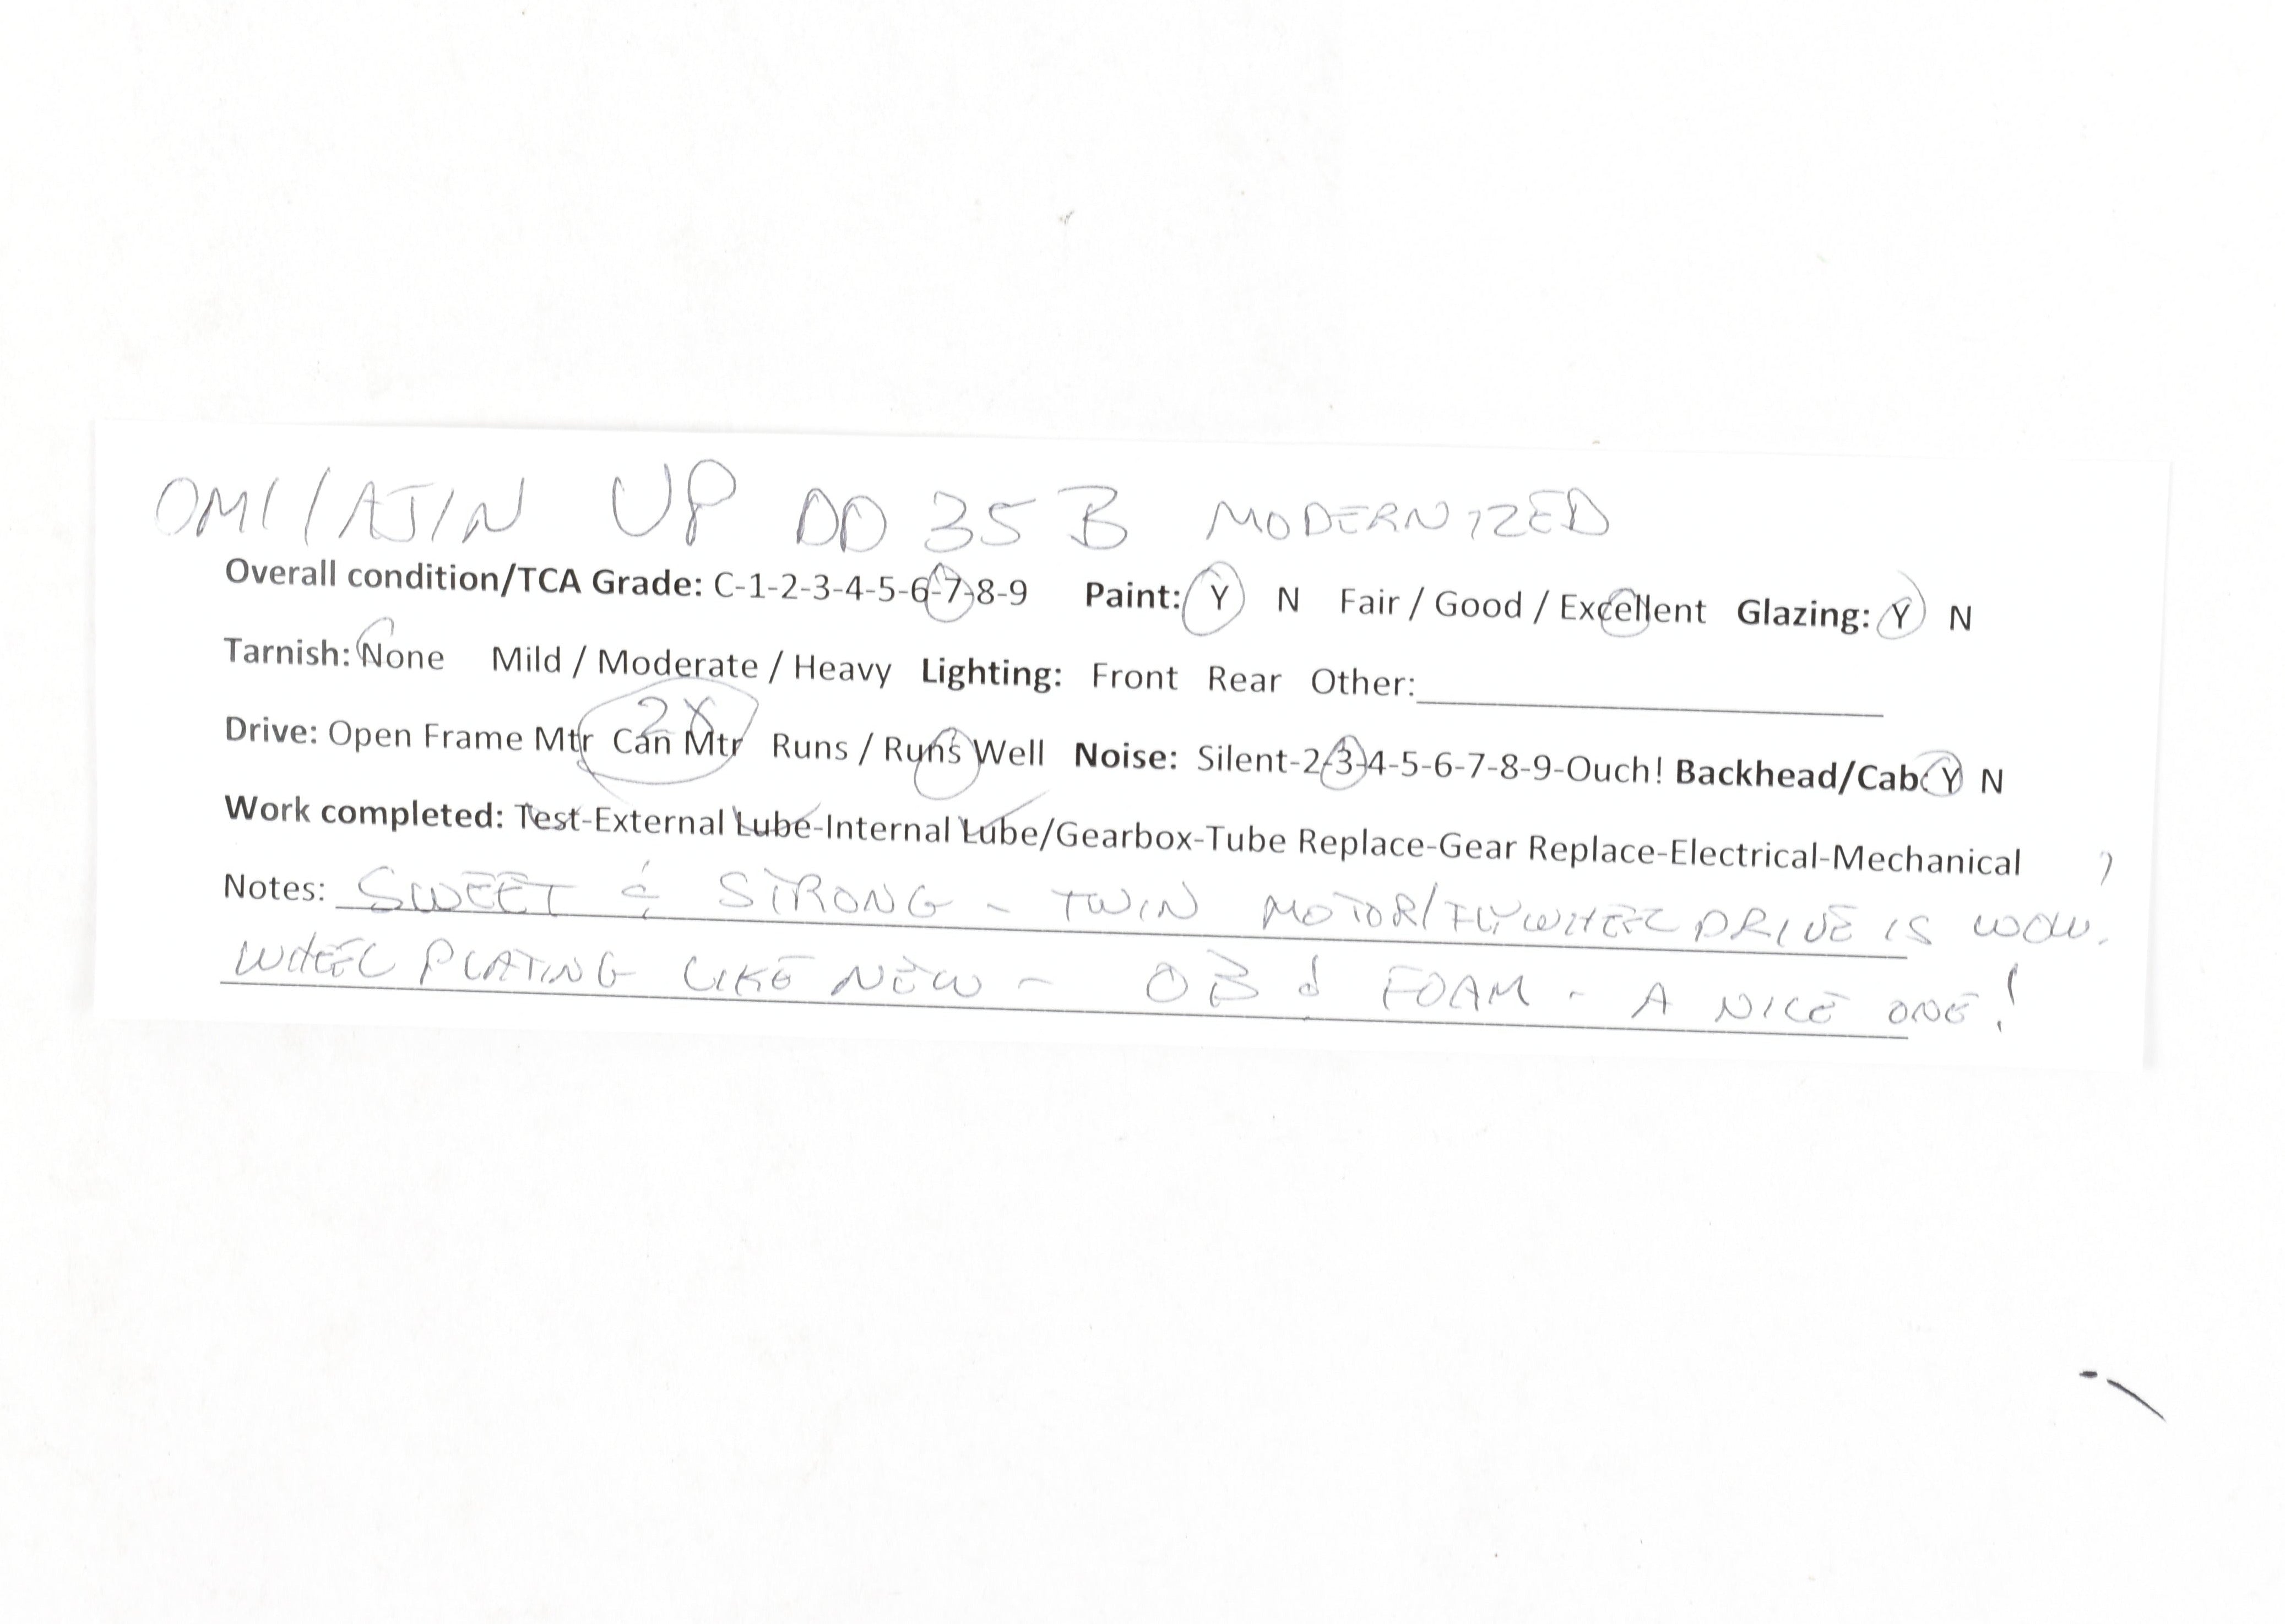 OMI/AJIN UP DD 35 B MODERNIZED
Overall condition/TCA Grade: C-1-2-3-4-5-6-7-8-9 Paint: Y N Fair / Good / Excellent Glazing: Y N
Tarnish: None Mild / Moderate / Heavy Lighting: Front Rear Other:
2X
Drive: Open Frame Mtr Can Mtr Runs / Runs Well Noise: Silent-2-3-4-5-6-7-8-9-Ouch! Backhead/Cab: Y N
Work completed: Test-External Lube-Internal Lube/Gearbox-Tube Replace-Gear Replace-Electrical-Mechanical
Notes: SWEET & STRONG - TWIN MOTOR/FLYWHEEL DRIVE IS WOW!
WHEEL PLATING LIKE NEW - OB & FOAM - A NICE ONE!